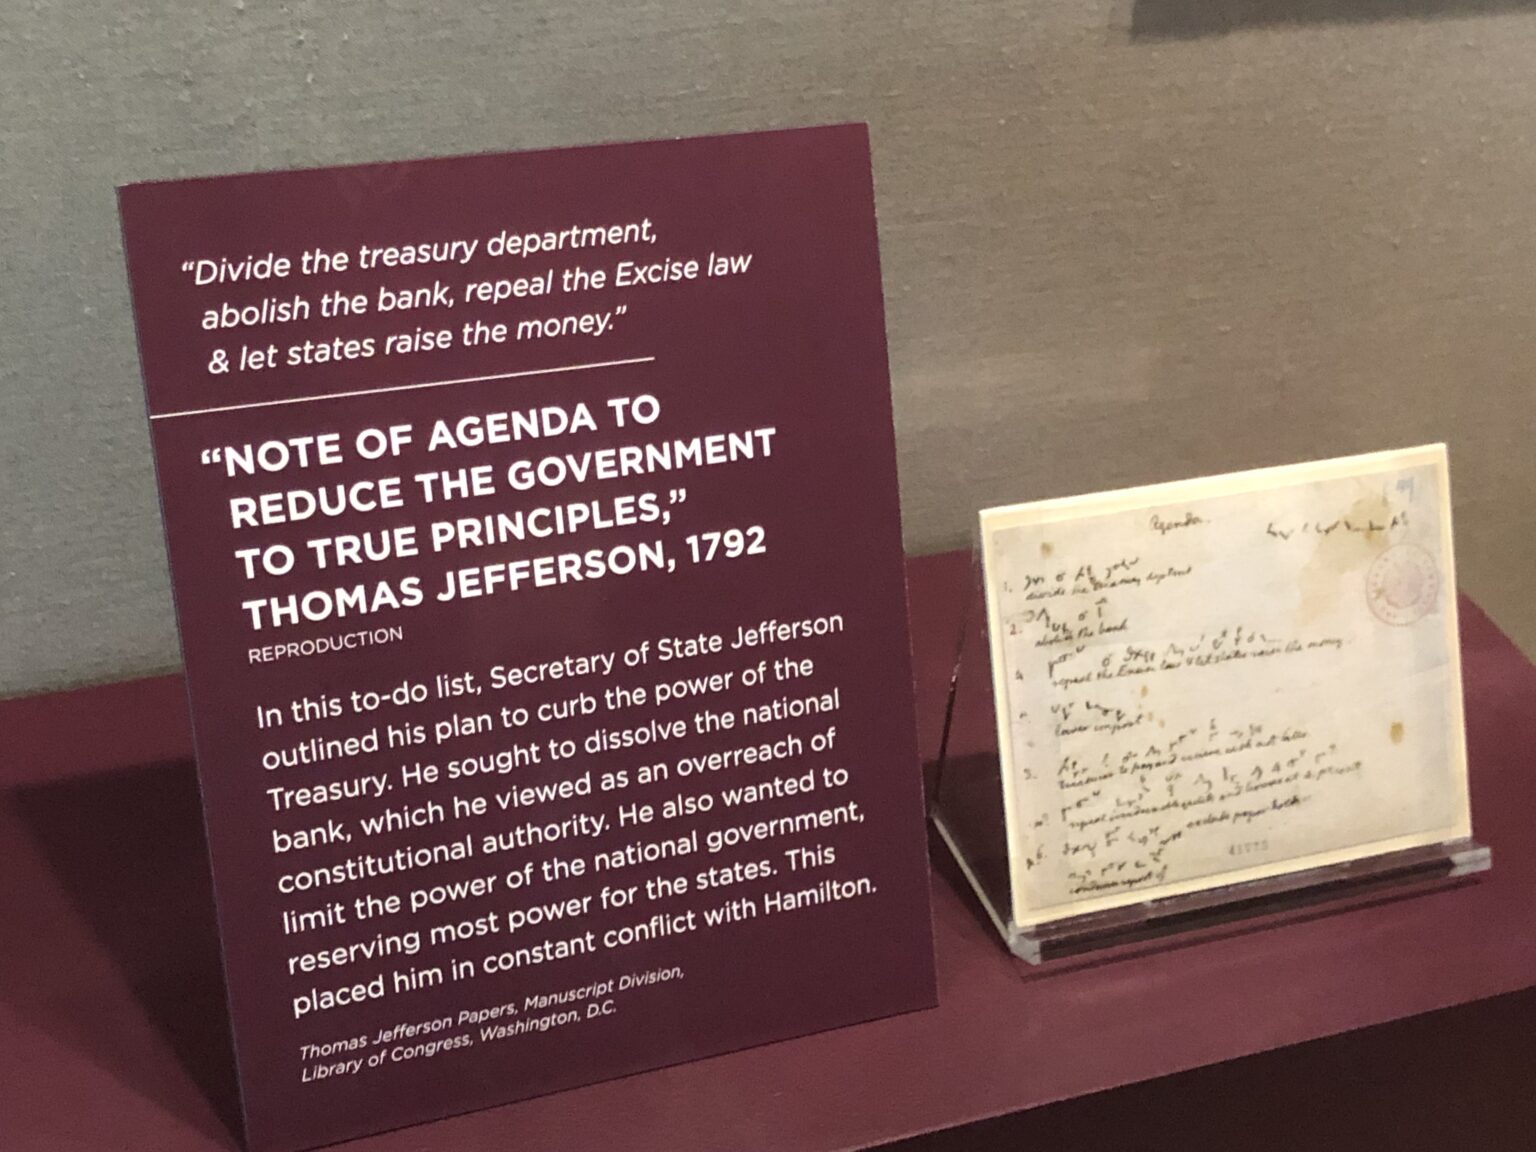 “Divide the treasury department,
abolish the bank, repeal the Excise law
& let states raise the money.”
“NOTE OF AGENDA TO
REDUCE THE GOVERNMENT
TO TRUE PRINCIPLES,”
THOMAS JEFFERSON, 1792
REPRODUCTION
In this to-do list, Secretary of State Jefferson
outlined his plan to curb the power of the
Treasury. He sought to dissolve the national
bank, which he viewed as an overreach of
constitutional authority. He also wanted to
limit the power of the national government,
reserving most power for the states. This
placed him in constant conflict with Hamilton.
Thomas Jefferson Papers, Manuscript Division,
Library of Congress, Washington, D.C.
Agenda.
1.
divide the treasury
2.
abolish the bank
repeal the Excise law & let states raise the money
lower impost